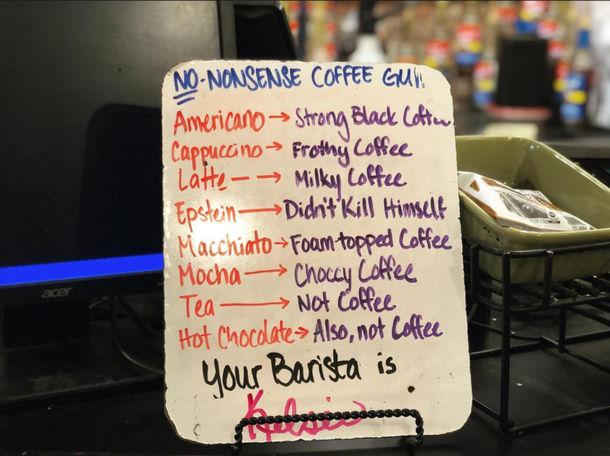 NO-NONSENSE COFFEE
Americano → Strong Black Coffee
Cappuccino → Frothy Coffee
Latte → Milky Coffee
Epstein → Didn't Kill Himself
Macchiato → Foam-topped Coffee
Mocha → Choccy Coffee
Tea → Not Coffee
Hot Chocolate → Also, not Coffee
Your Barista is
Kelsie
acer